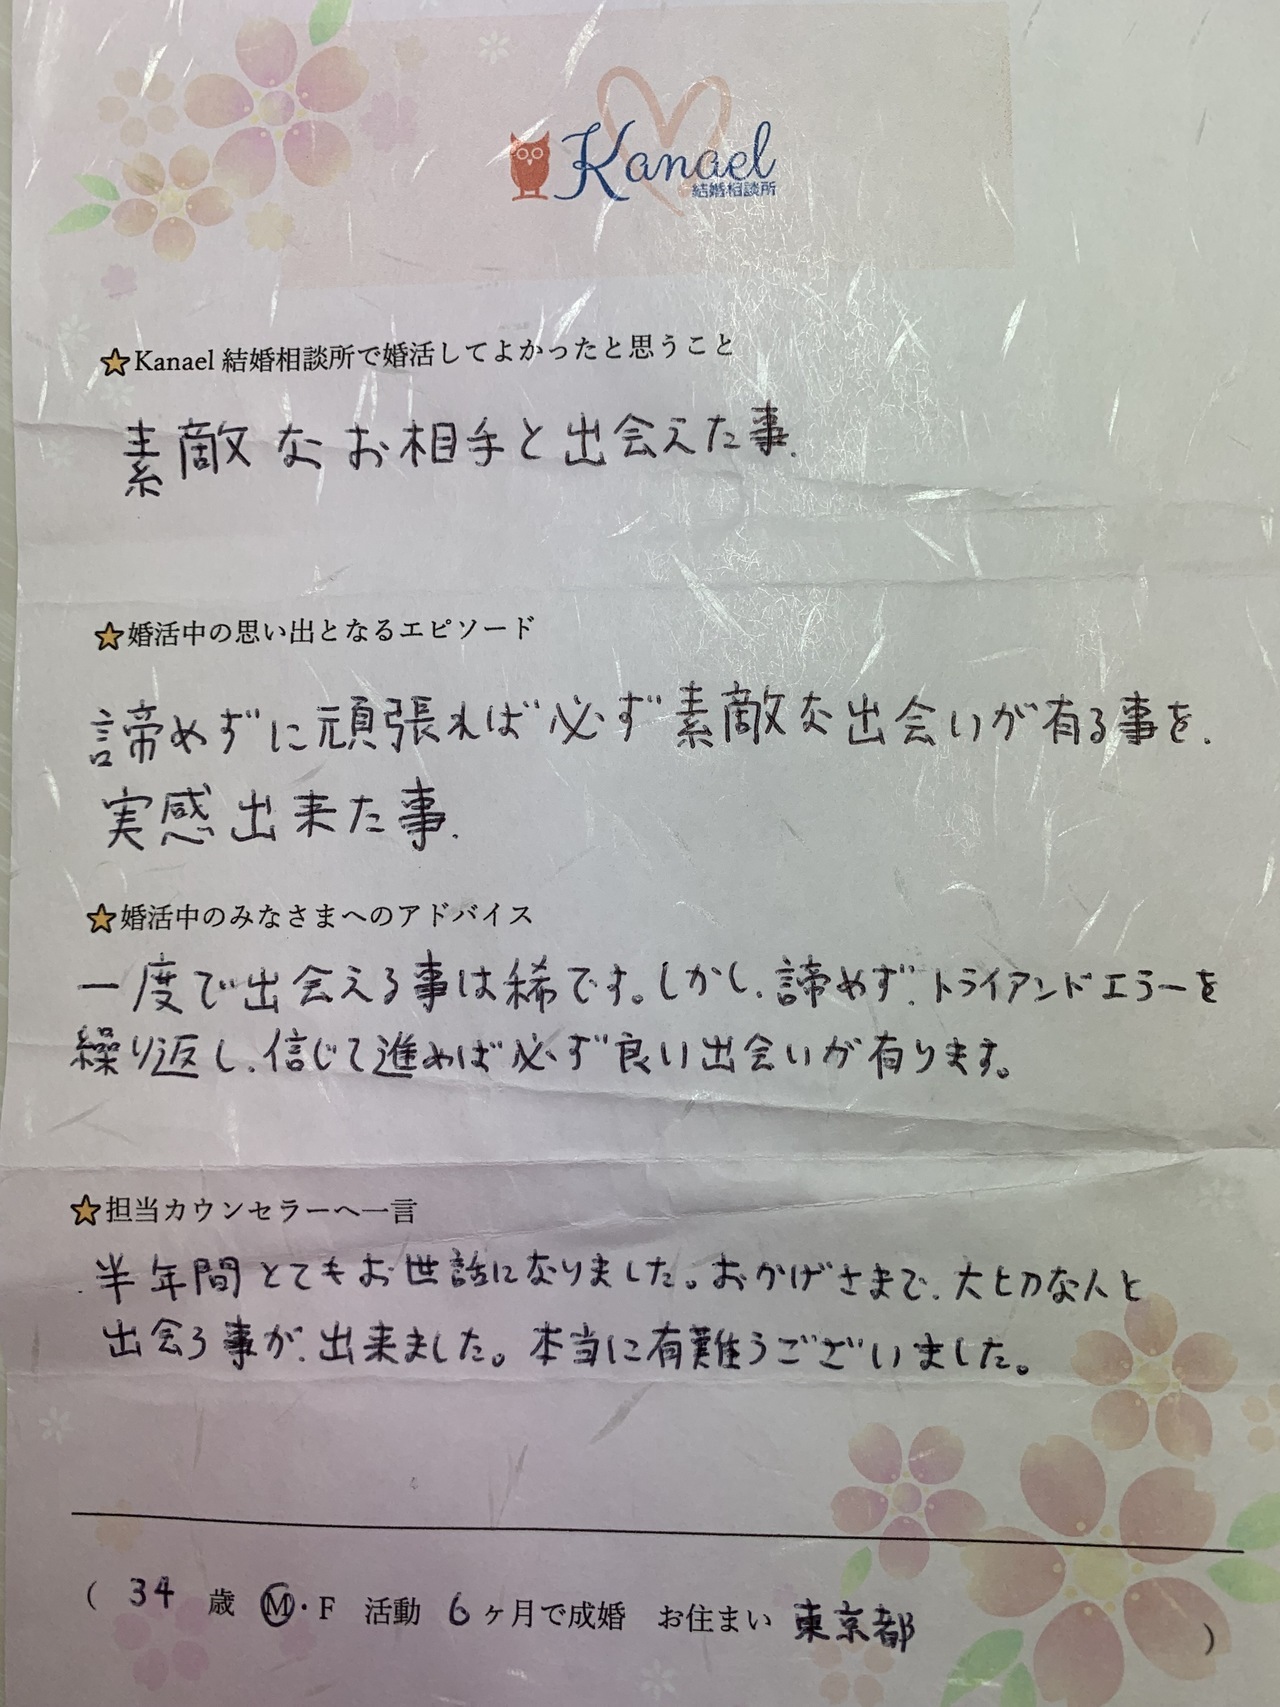 Kanael
結婚相談所
Kanael 結婚相談所で婚活してよかったと思うこと
素敵なお相手と出会えた事.
婚活中の思い出となるエピソード
諦めずに頑張れば必ず素敵な出会いが有る事を.
実感出来た事.
婚活中のみなさまへのアドバイス
一度で出会える事は稀です。しかし、諦めず、トライアンドエラーを
繰り返し、信じて進めば必ず良い出会いが有ります。
担当カウンセラーへ一言
半年間とてもお世話になりました。おかげさまで、大切な人と
出会う事が、出来ました。本当に有難うございました。
( 34 歳 M・F 活動 6 ヶ月で成婚 お住まい 東京都 )